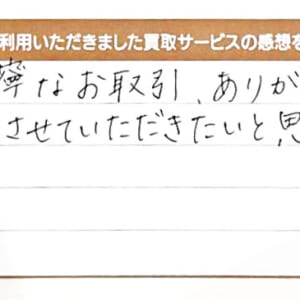 利用いただきました買取サービスの感想を
寧なお取引、ありが
させていただきたいと思